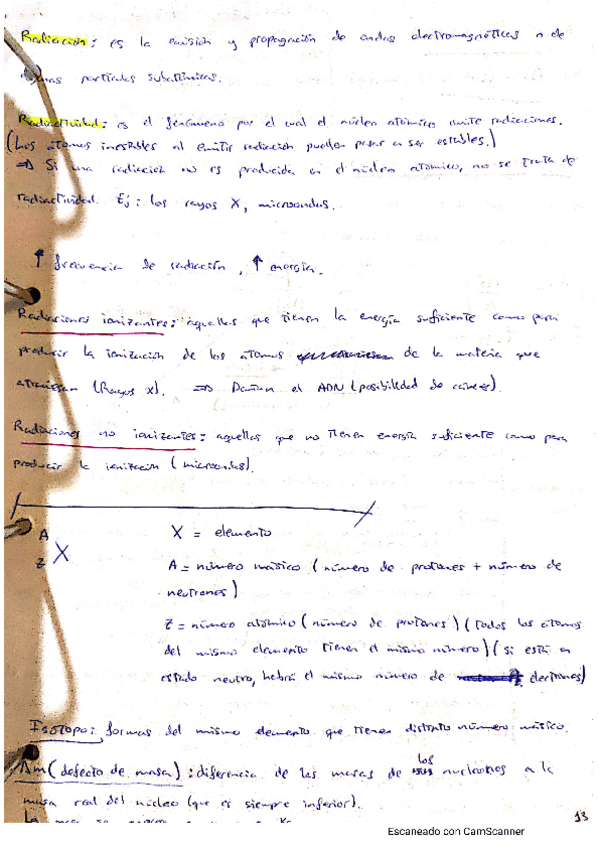 Radiación: es la emisión y propagación de ondas electromagnéticas o de
algunas partículas subatómicas.
Radiactividad: es el fenómeno por el cual el núcleo atómico emite radiaciones.
(Los átomos inestables al emitir radiación pueden pasar a ser estables.)
⇒ Si una radiación no es producida en el núcleo atómico, no se trata de
radiactividad. Ej: los rayos X, microondas.
↑ frecuencia de radiación, ↑ energía.
Radiaciones ionizantes: aquellas que tienen la energía suficiente como para
producir la ionización de los átomos de la materia que
atraviesan (Rayos X). ⇒ Dañan el ADN (posibilidad de cáncer).
Radiaciones no ionizantes: aquellas que no tienen energía suficiente como para
producir la ionización (microondas).
A
Z X
X = elemento
A = número másico (número de protones + número de
neutrones)
Z = número atómico (número de protones) (todos los átomos
del mismo elemento tienen el mismo número) (si está en
estado neutro, habrá el mismo número de electrones)
Isótopo: formas del mismo elemento que tienen distinto número másico.
Δm (defecto de masa): diferencia de las masas de los nucleones a la
masa real del núcleo (que es siempre inferior).
13
Escaneado con CamScanner